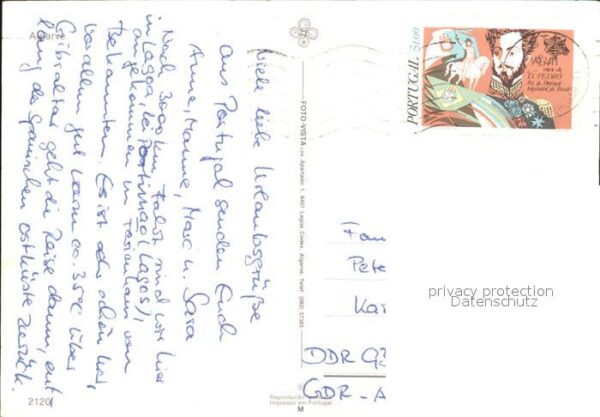 Algarve
Viele liebe Urlaubsgrüße
aus Portugal senden Euch
Annemarie, Maxi u. Sara
Nach 3000 km Fahrt sind wir hier
in Lagoa, bei Portimao (Lagos),
angekommen im Ferienhaus von
Bekannten. Es ist sehr schön hier,
vor allem gut warm ca. 35°C. Über
Gibraltar geht die Reise dann, ent-
lang der spanischen Ostküste zurück.
2120/
FOTO-VISTA Lda. Apartado 1, 8401 Lagoa Codex, Algarve, Telef. (082) 57365
Reprodução
Impresso em Portugal
M
PORTUGAL 5.00
D. PEDRO
Rei de Portugal
Imperador do Brasil
Fam
Pete
Kar
DDR 93
GDR - A
privacy protection
Datenschutz